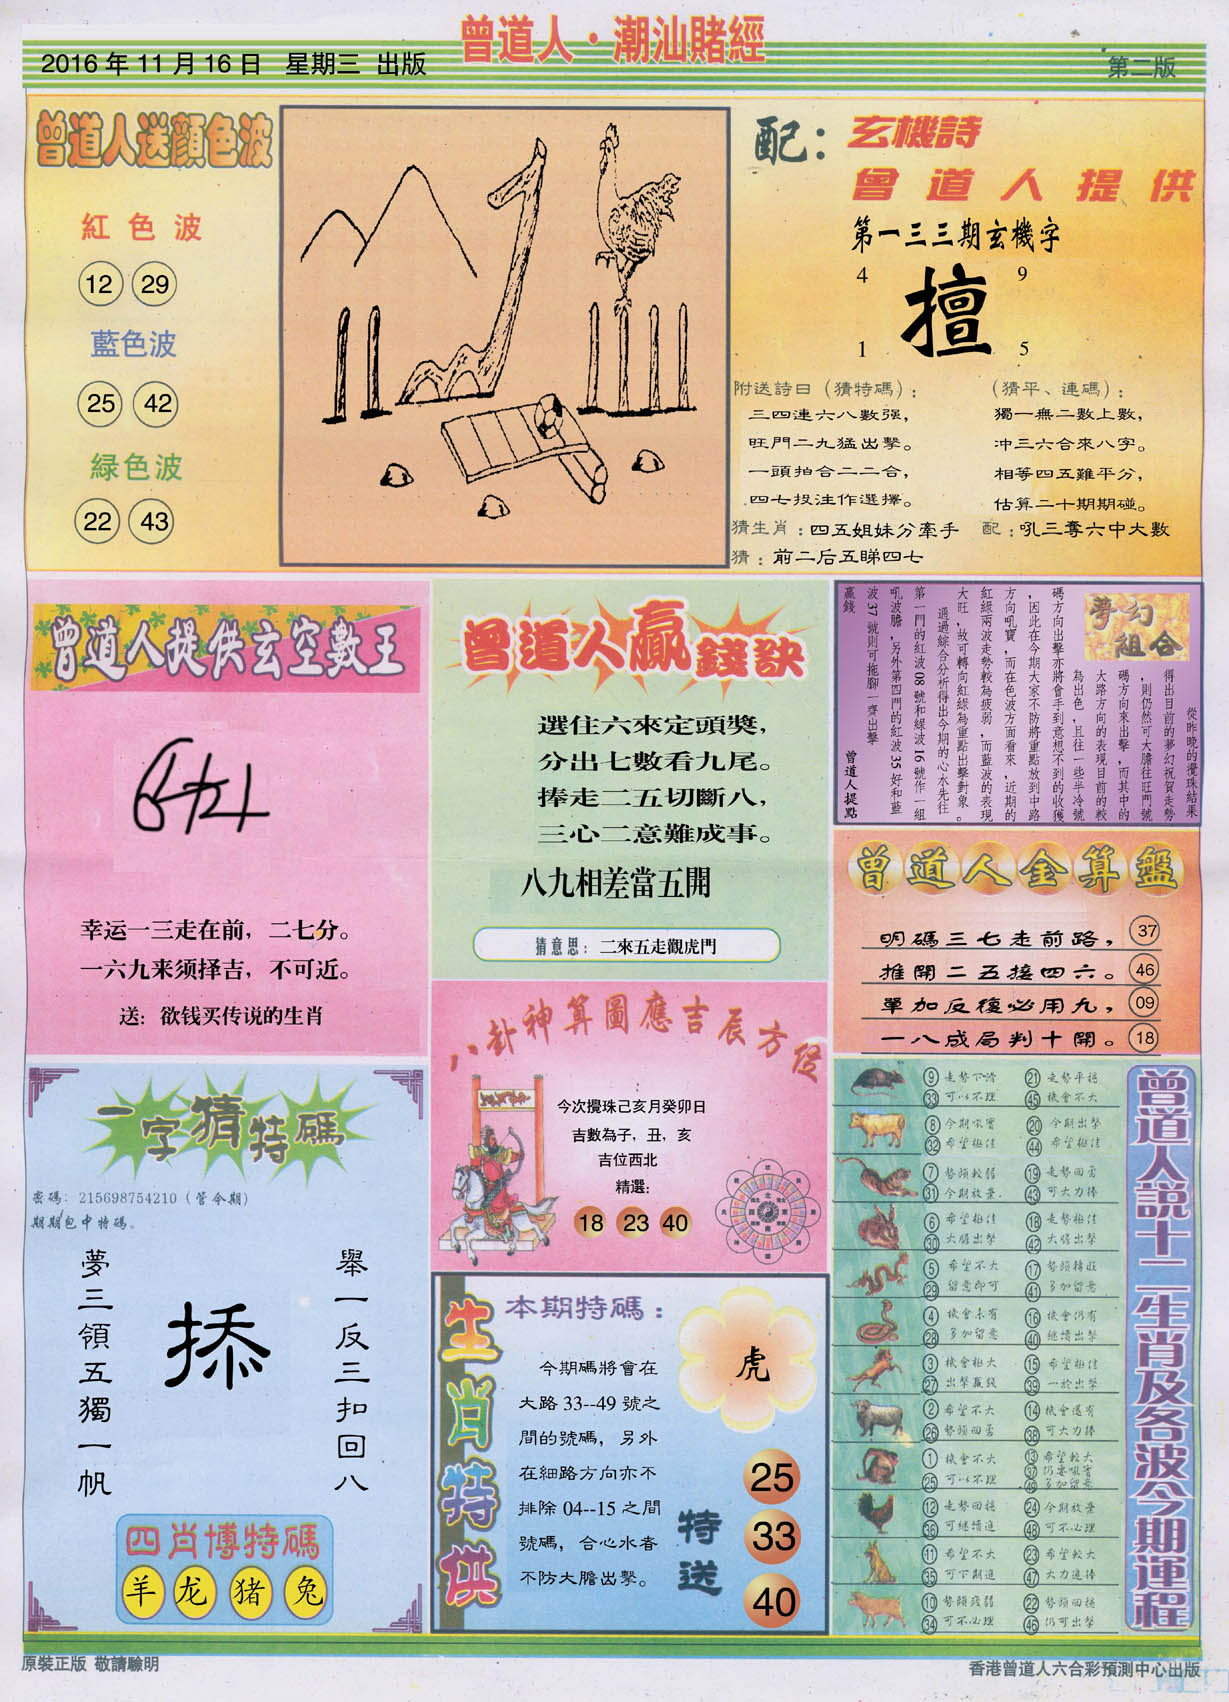 曾道人·潮汕賭經
2016 年 11 月 16 日 星期三 出版
第二版
曾道人送顏色波
紅色波
12 29
藍色波
25 42
緑色波
22 43
配：玄機詩
曾道人提供
第一三三期玄機字
4 9
擅
1 5
附送詩日（猜特碼）：
三四連六八數强，
旺門二九猛出擊。
一頭拍合二二合，
四七投注作選擇。
（猜平、連碼）：
獨一無二數上數，
冲三六合來八字。
相等四五難平分，
估算二十期期碰。
猜生肖：四五姐妹分牽手
配：吼三奪六中大數
猜：前二后五睇四七
曾道人提供玄空數王
幸运一三走在前，二七分。
一六九来须择吉，不可近。
送：欲钱买传说的生肖
曾道人贏錢訣
選住六來定頭獎，
分出七數看九尾。
捧走二五切斷八，
三心二意難成事。
八九相差當五開
猜意思：二來五走觀虎門
夢幻組合
從昨晚的攪珠結果
得出目前的夢幻祝賀走勢
，則仍然可大膽往旺門號
碼方向來出擊，而其中的
大路方向的表現目前的較
為出色，且往一些半冷號
碼方向出擊亦將會手到意想不到的收獲
，因此在今期大家不防將重點放到中路
方向吼寶，而在色波方面看來，近期的
紅綠兩波走勢較為疲弱，而藍波的表現
大旺，故可轉向紅綠為重點出擊對象。
通過綜合分析得出今期的心水先往
第一門的紅波 08 號和緑波 16 號作一組
吼波膽，另外第四門的紅波 35 好和藍
波 37 號則可拖腳一齊出擊
贏錢
曾道人提點
曾道人金算盤
明碼三七走前路， 37
推開二五接四六。 46
單加反復必用九， 09
一八成局判十開。 18
八卦神算圖應吉辰方位
今次攪珠己亥月癸卯日
吉數為子，丑，亥
吉位西北
精選：
18 23 40
一字猜特碼
密碼：215698754210（管今期）
期期包中特碼。
舉一反三扣回八
掭
夢三領五獨一帆
四肖博特碼
羊 龙 猪 兔
生肖特供
本期特碼：
虎
今期碼將會在
大路 33--49 號之
間的號碼，另外
在細路方向亦不
排除 04--15 之間
號碼，合心水者
不防大膽出擊。
特送
25
33
40
曾道人説十二生肖及各波今期運程
9 走勢下滑 21 走勢平穩
33 可以不理 45 機會不大
8 今期吼寶 20 今期出擊
32 希望極佳 44 希望極佳
7 勢頭較弱 19 走勢回勇
31 今期放棄 43 可大力捧
6 希望極佳 18 走勢極佳
30 大膽出擊 42 大膽出擊
5 希望不大 17 勢頭轉旺
29 留意即可 41 多加留意
4 機會未有 16 機會仍有
28 多加留意 40 繼續出擊
3 機會極大 15 希望極佳
27 出擊贏錢 39 一於出擊
2 希望不大 14 機會還有
26 勢頭回勇 38 可大力捧
1 機會不大 13 希望較大
25 可以不理 37 仍要吼寶
49 多加留意
12 走勢回穩 24 今期放棄
36 可繼續追 48 可不必理
11 希望不大 23 希望較大
35 可下期追 47 大力追捧
10 勢頭疲弱 22 勢頭回穩
34 可不必理 46 仍可出擊
原裝正版 敬請驗明
香港曾道人六合彩預測中心出版